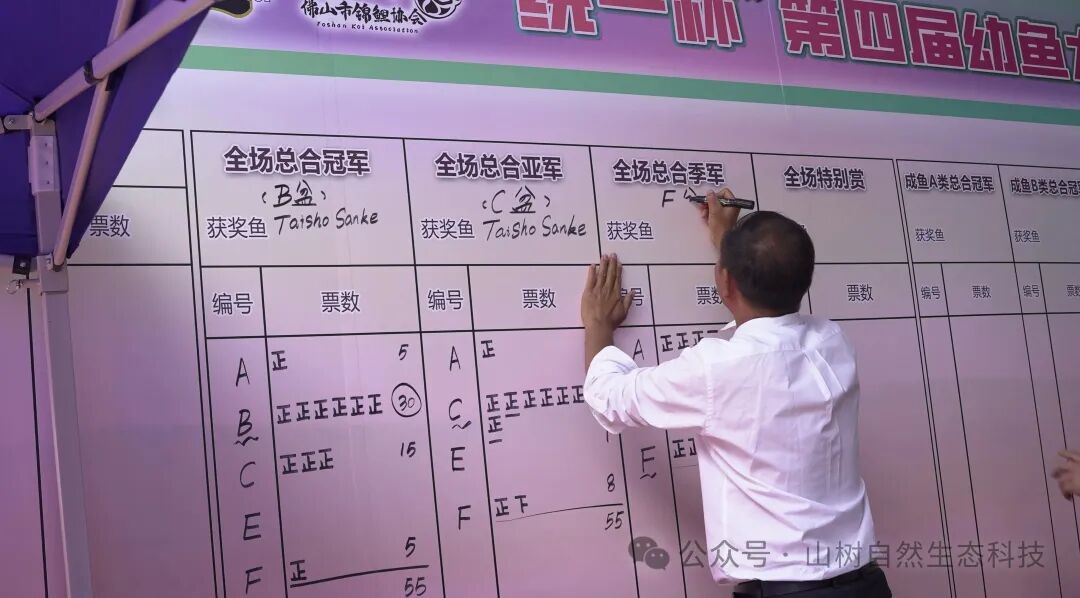 佛山市锦鲤协会
Foshan Koi Association
统一杯 第四届幼鱼
票数
全场总合冠军
(B盆)
获奖鱼 Taisho Sanke
编号 票数
A 正 5
B 正正正正正正 30
C 正正正 15
E
F 正 5
55
全场总合亚军
(C盆)
获奖鱼 Taisho Sanke
编号 票数
A 正
C 正正正正正正
正
E
F 正下 8
55
全场总合季军
F
获奖鱼
号 票数
A 正正正
E 正
全场特别赏
票数
成鱼A类总合冠军
获奖鱼
编号 票数
成鱼B类总合冠军
获奖鱼
编号 票数
公众号·山树自然生态科技